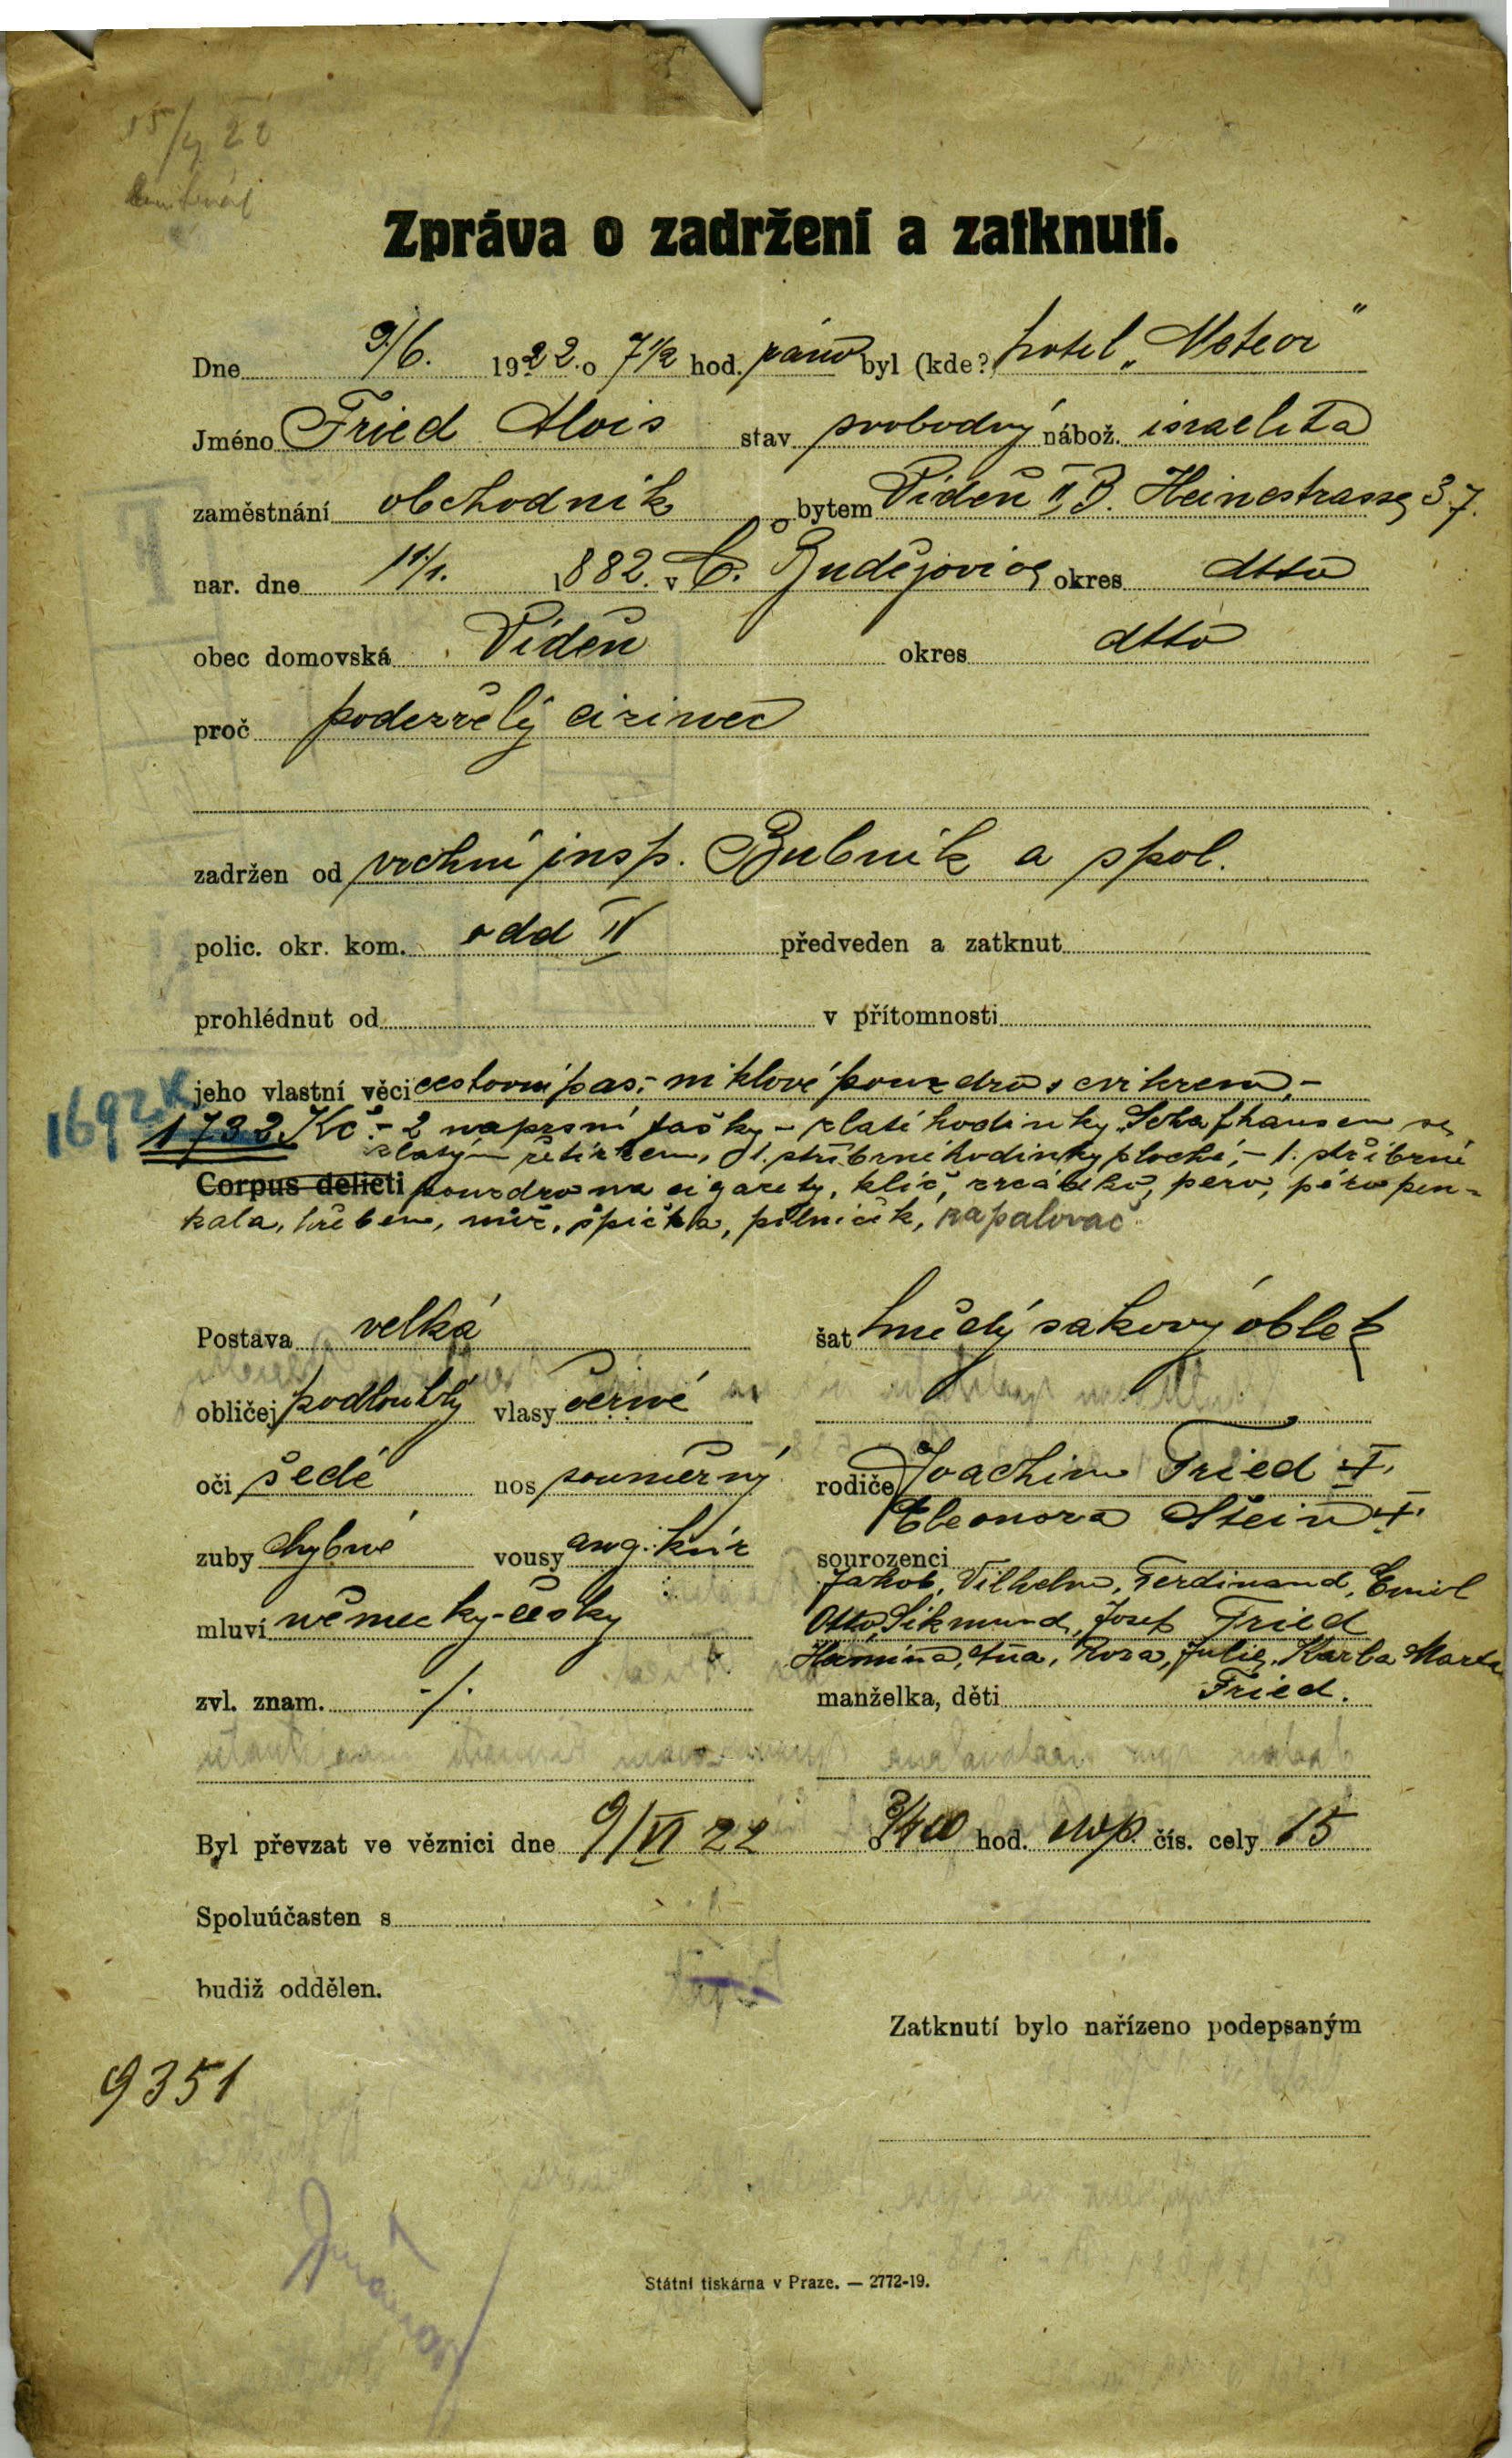 15/6 22
Zpráva o zadržení a zatknutí.
Dne 9/6. 1922. o 7 1/2 hod. ráno byl (kde?) hotel „Meteor“
Jméno Fried Alois stav svobodný nábož. israelita
zaměstnání obchodník bytem Vídeň II, B. Heinestrasse 37.
nar. dne 11/1. 1882. v Č. Budějovice okres dtto
obec domovská Vídeň okres dtto
proč podezřelý cizinec
zadržen od vrchní insp. Bubník a spol.
polic. okr. kom. odd IV předveden a zatknut
prohlédnut od v přítomnosti
jeho vlastní věci cestovní pas,- niklové pouzdro s cvikrem,-
1692 K
1732 Kč.- 2 naprsní tašky - zlaté hodinky Schafhausen se
zlatým řetízkem, 1. stříbrné hodinky ploché,- 1. stříbrné
Corpus delicti pouzdro na cigarety, klíč, zrcátko, pero, péro pen-
kala, hřeben, nůž, špička, pilníček, zapalovač
Postava velká šat hnědý sakový oblek
obličej podlouhlý vlasy černé
oči šedé nos souměrný rodiče Joachim Fried †.
Eleonora Stein †.
zuby chybné vousy ang. knír sourozenci
Jakob, Vilhelm, Ferdinand, Emil
mluví německy-česky Otto, Sikmund, Josef Fried
Hermina, Ana, Rosa, Julie, Karla Marta
zvl. znam. ./. manželka, děti Fried.
Byl převzat ve věznici dne 9/VI 22 o 3/4 00 hod. čís. cely 15
Spoluúčasten s
budiž oddělen.
Zatknutí bylo nařízeno podepsaným
9351
Státní tiskárna v Praze. — 2772-19.